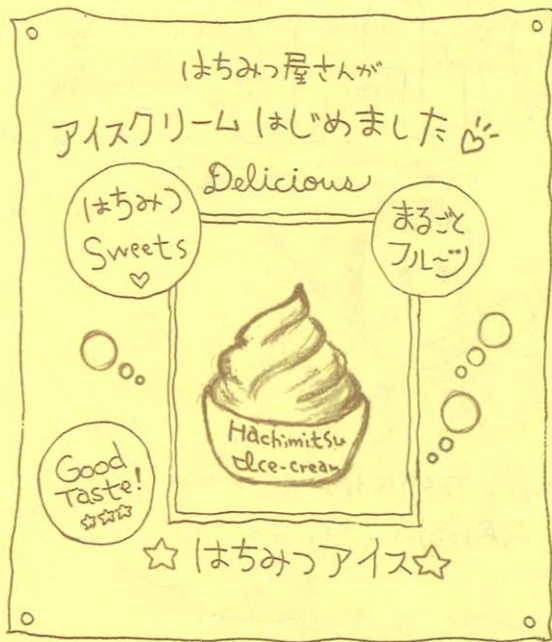 はちみつ屋さんが
アイスクリームはじめました♡
Delicious
はちみつ
Sweets
♡
まるごと
フル〜ツ
Hachimitsu
Ice-cream
Good
Taste!
☆☆☆
☆はちみつアイス☆